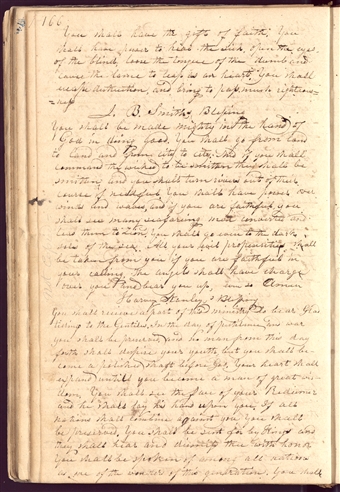 166
You shall have the gift of faith; You
shall have power to heal the sick, open the eyes
of the blind, loose the tongue of the dumb, and
cause the lame to leap as an heart, You shall
escape distruction, and bring to pass much righteous-
ness
J. B. Smiths Blessing
You shall be made mighty in the hand of
God in doing good. You shall go from land
to land and from city to city, And if you shall
command the to be smitten they shall be
smitten, and you shall turn rivers out of their
course if needful. You shall have power over
winds and waves, and if you are faithful you
shall see many seafaring men converted and
lead them to Zion, You shall go even to the
of the sea. All your propensities shall
be taken from you if you are faithful in
your calling, The angels shall have charge
over you and bear you up, even so Amen
Harvy Stanley's Blessing
You shall receive a part of this ministry to bear glad
tidings to the Gentiles. In the day of pestilence and war
you shall be preserved and no man from this day
forth shall despise your youth, but you shall be-
come a polished shaft before God. Your heart shall
expand untill you become a man of great wis-
dom, You shall see the face of your Redeemer
and he shall lay his hand upon you, If all
nations shall combine against you, you shall
be preserved, You shall be sent for by kings and
they shall hear and dismiss thee with honor
You shall be spoken of among all nations
as one of the wonders of this generation, You shall